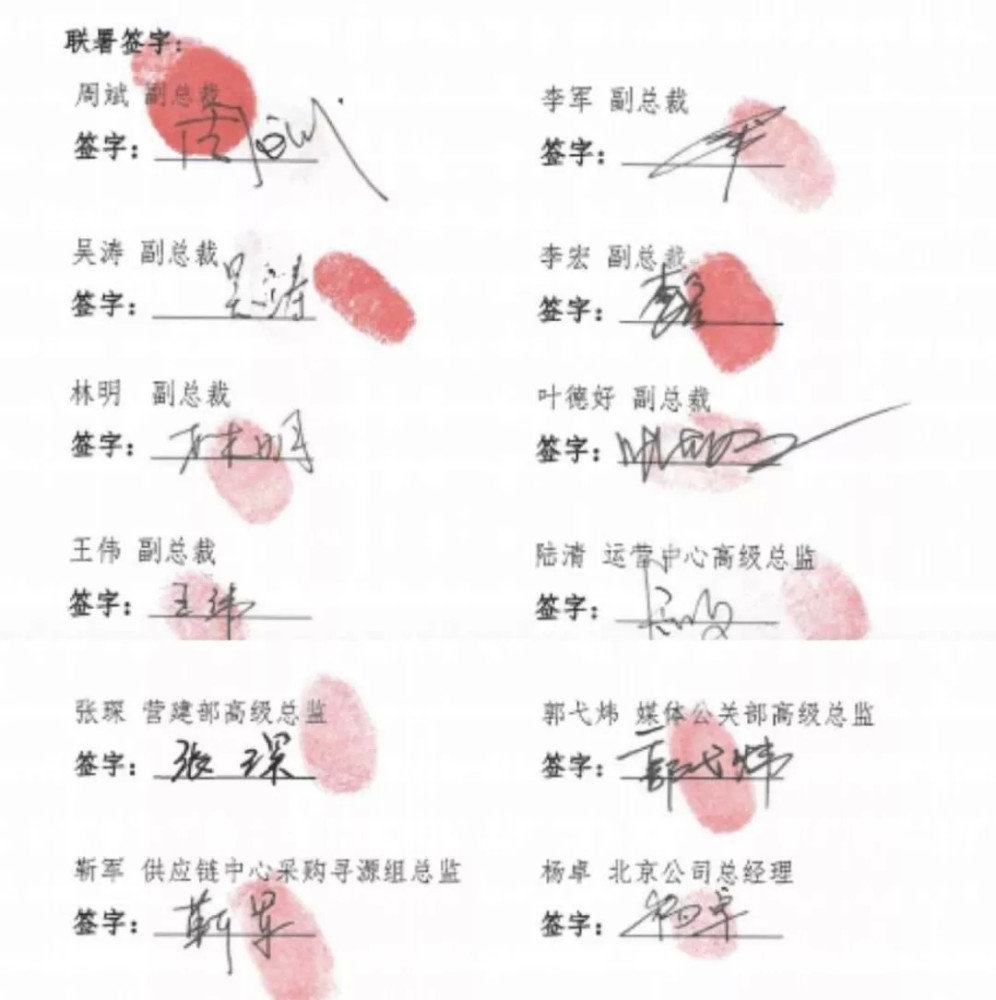 联署签字:
周斌 副总裁
李军 副总裁
签字: 周斌
签字:
吴涛 副总裁
李宏 副总裁
签字: 吴涛
签字: 李宏
林明 副总裁
叶德好 副总裁
签字: 林明
签字:
王伟 副总裁
陆清 运营中心高级总监
签字: 王伟
签字:
张琛 营建部高级总监
郭弋炜 媒体公关部高级总监
签字: 张琛
签字: 郭弋炜
靳军 供应链中心采购寻源组总监
杨卓 北京公司总经理
签字: 靳军
签字: 杨卓